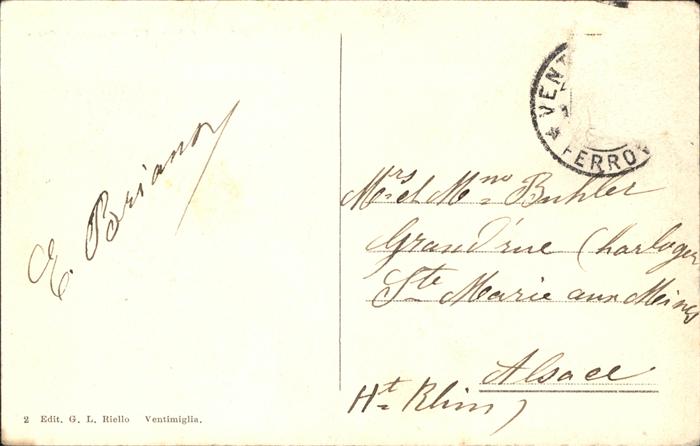 E. Briano
VENT
* FERROV
Mrs et Mme Buhler
Grand'rue (horloger
Ste Marie aux Mines
Alsace
Ht Rhin)
2 Edit. G. L. Riello Ventimiglia.